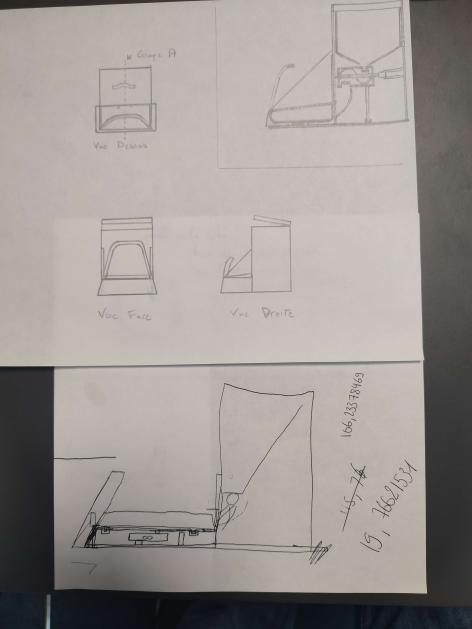 Coupe A
Vue Dessus
Vue Face
Vue Droite
166,23378469
15,76
15,76621531